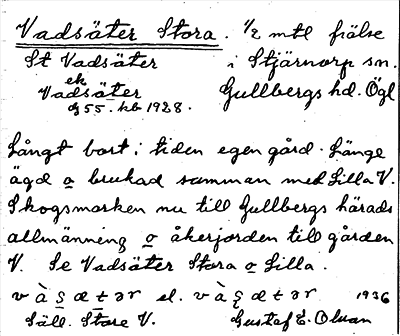 Vadsäter Stora. 1/2 mtl frälse
St Vadsäter i Stjärnorp sn.
ek
Vadsäter Gullbergs hd. Ögl
dg 55. kb 1928.
Långt bort i tiden egen gård. Länge
ägd o brukad samman med Lilla V.
Skogsmarken nu till Gullbergs härads
allmänning o åkerjorden till gården
V. Se Vadsäter Stora o Lilla.
el. 1936
Säll. Store V. Gustaf E. Olsson